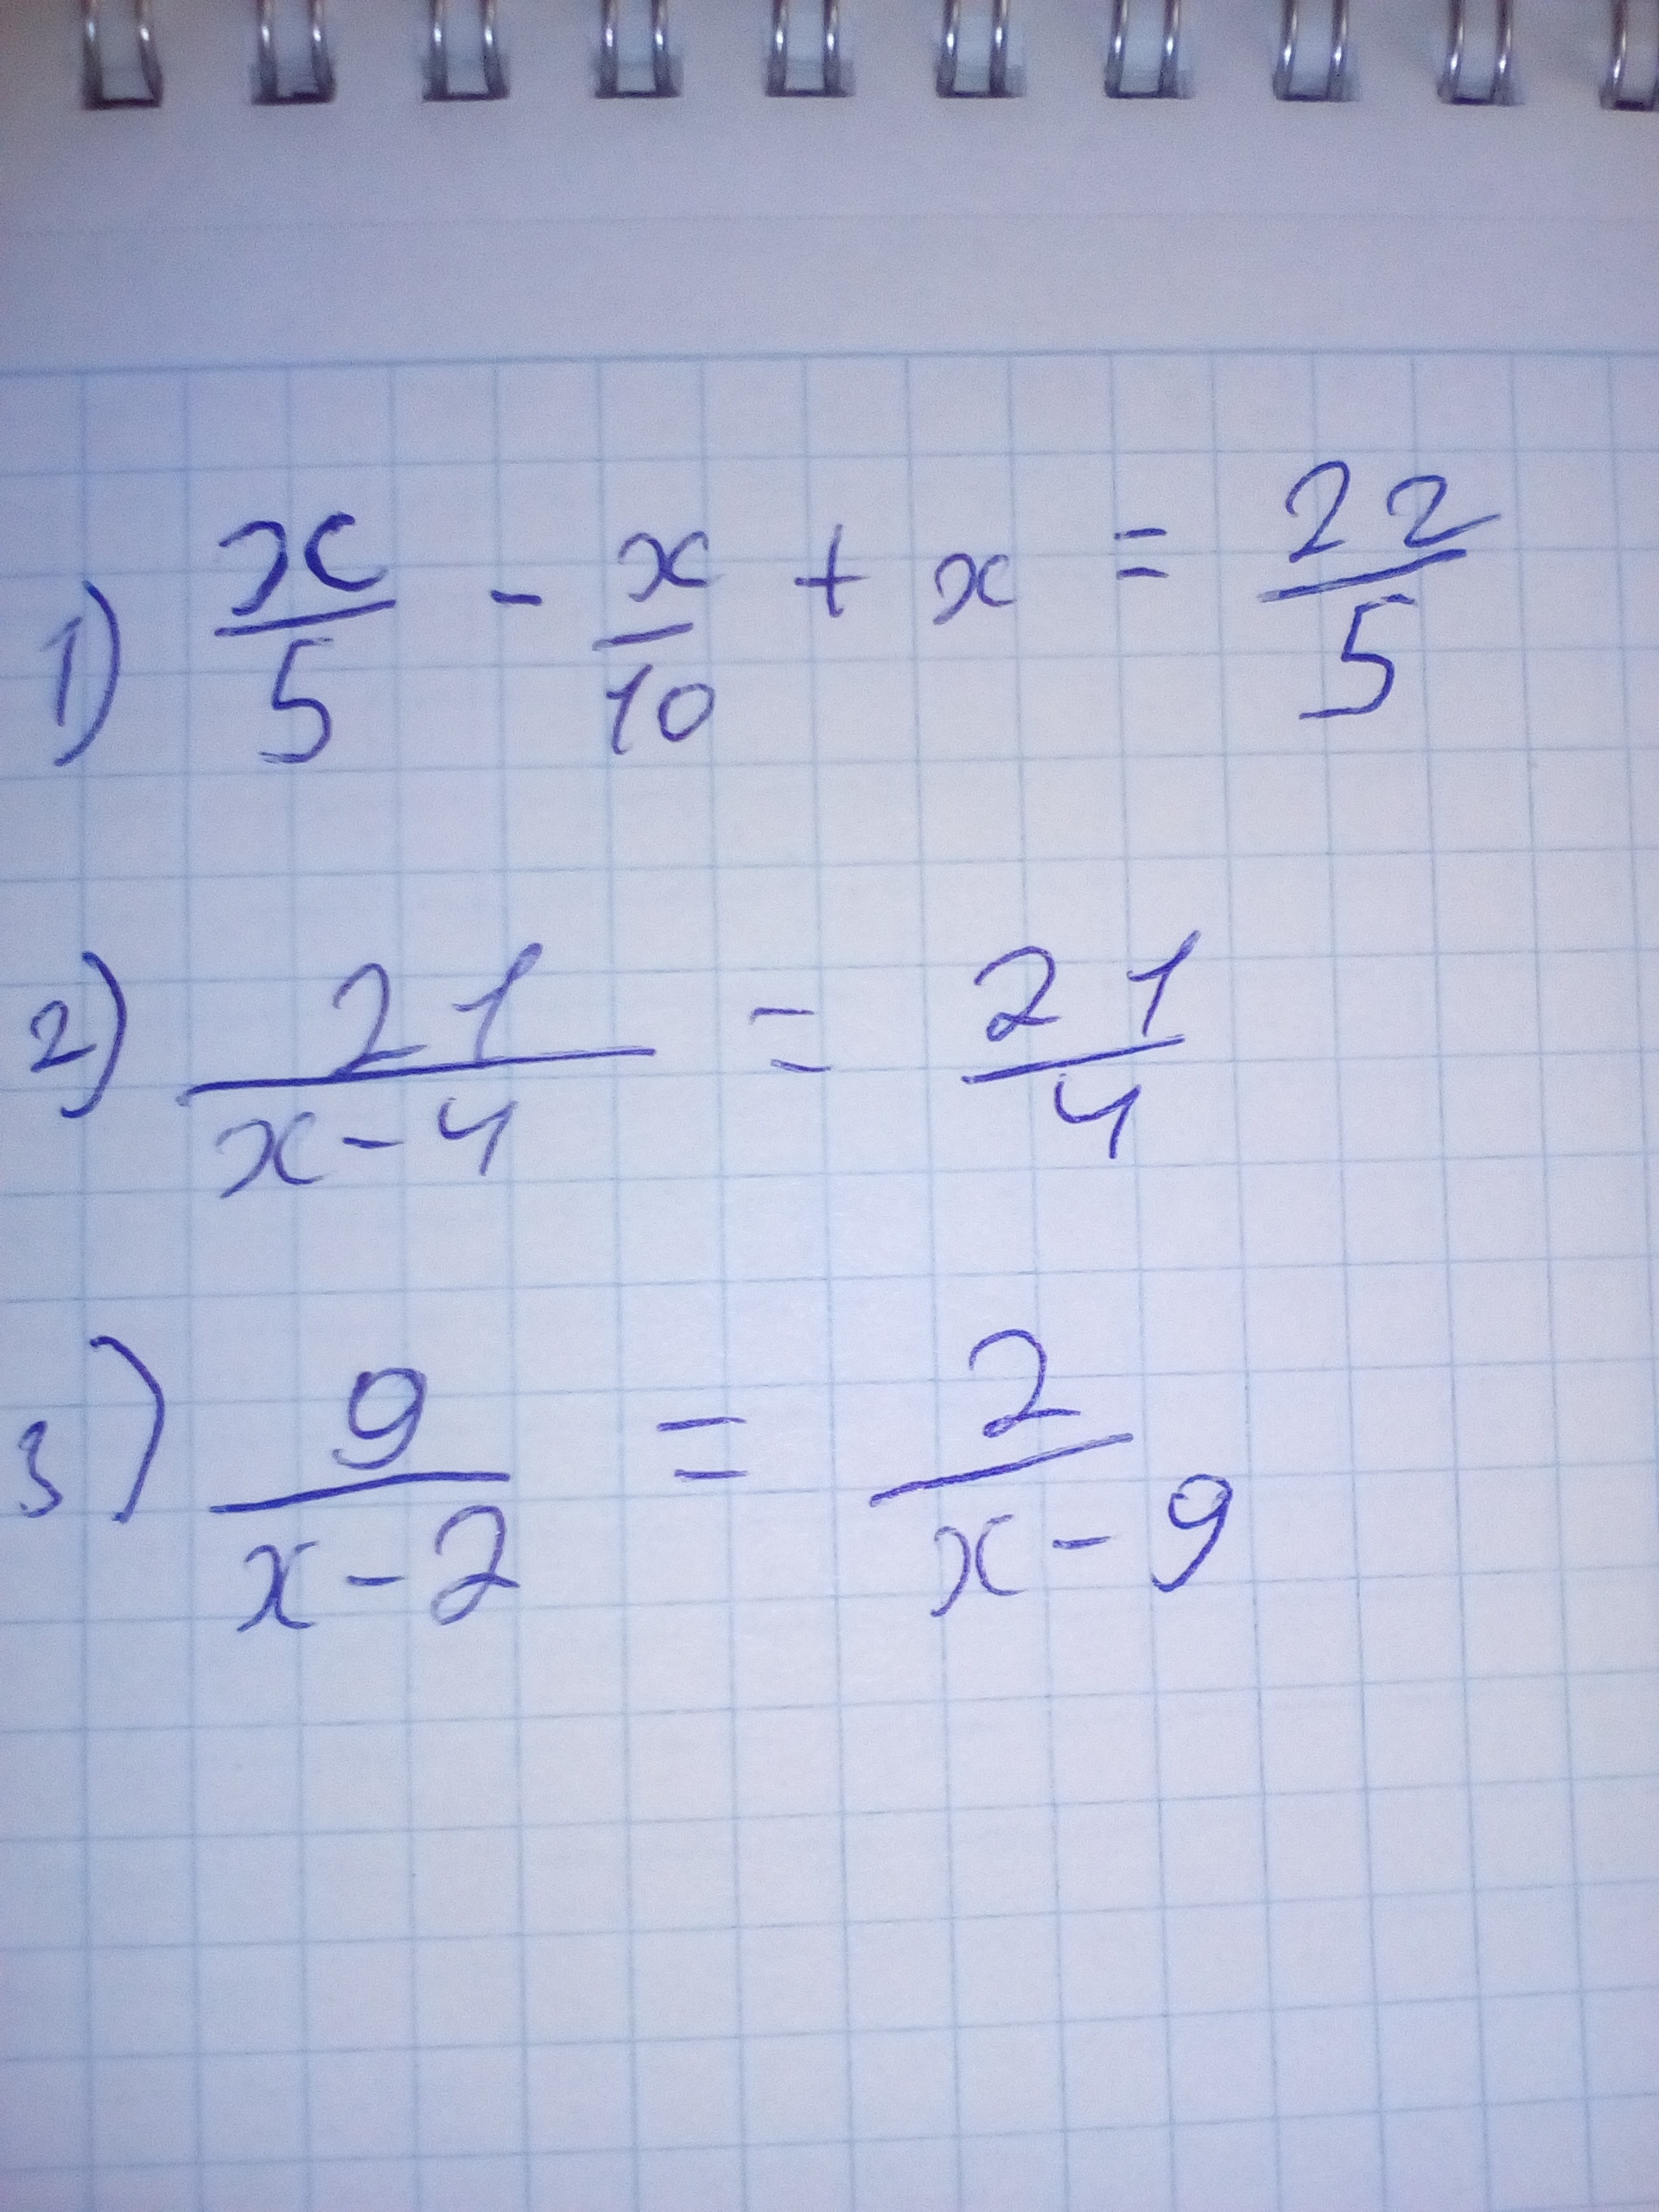 1) x/5 - x/10 + x = 22/5
2) 21/(x-4) = 21/4
3) 9/(x-2) = 2/(x-9)